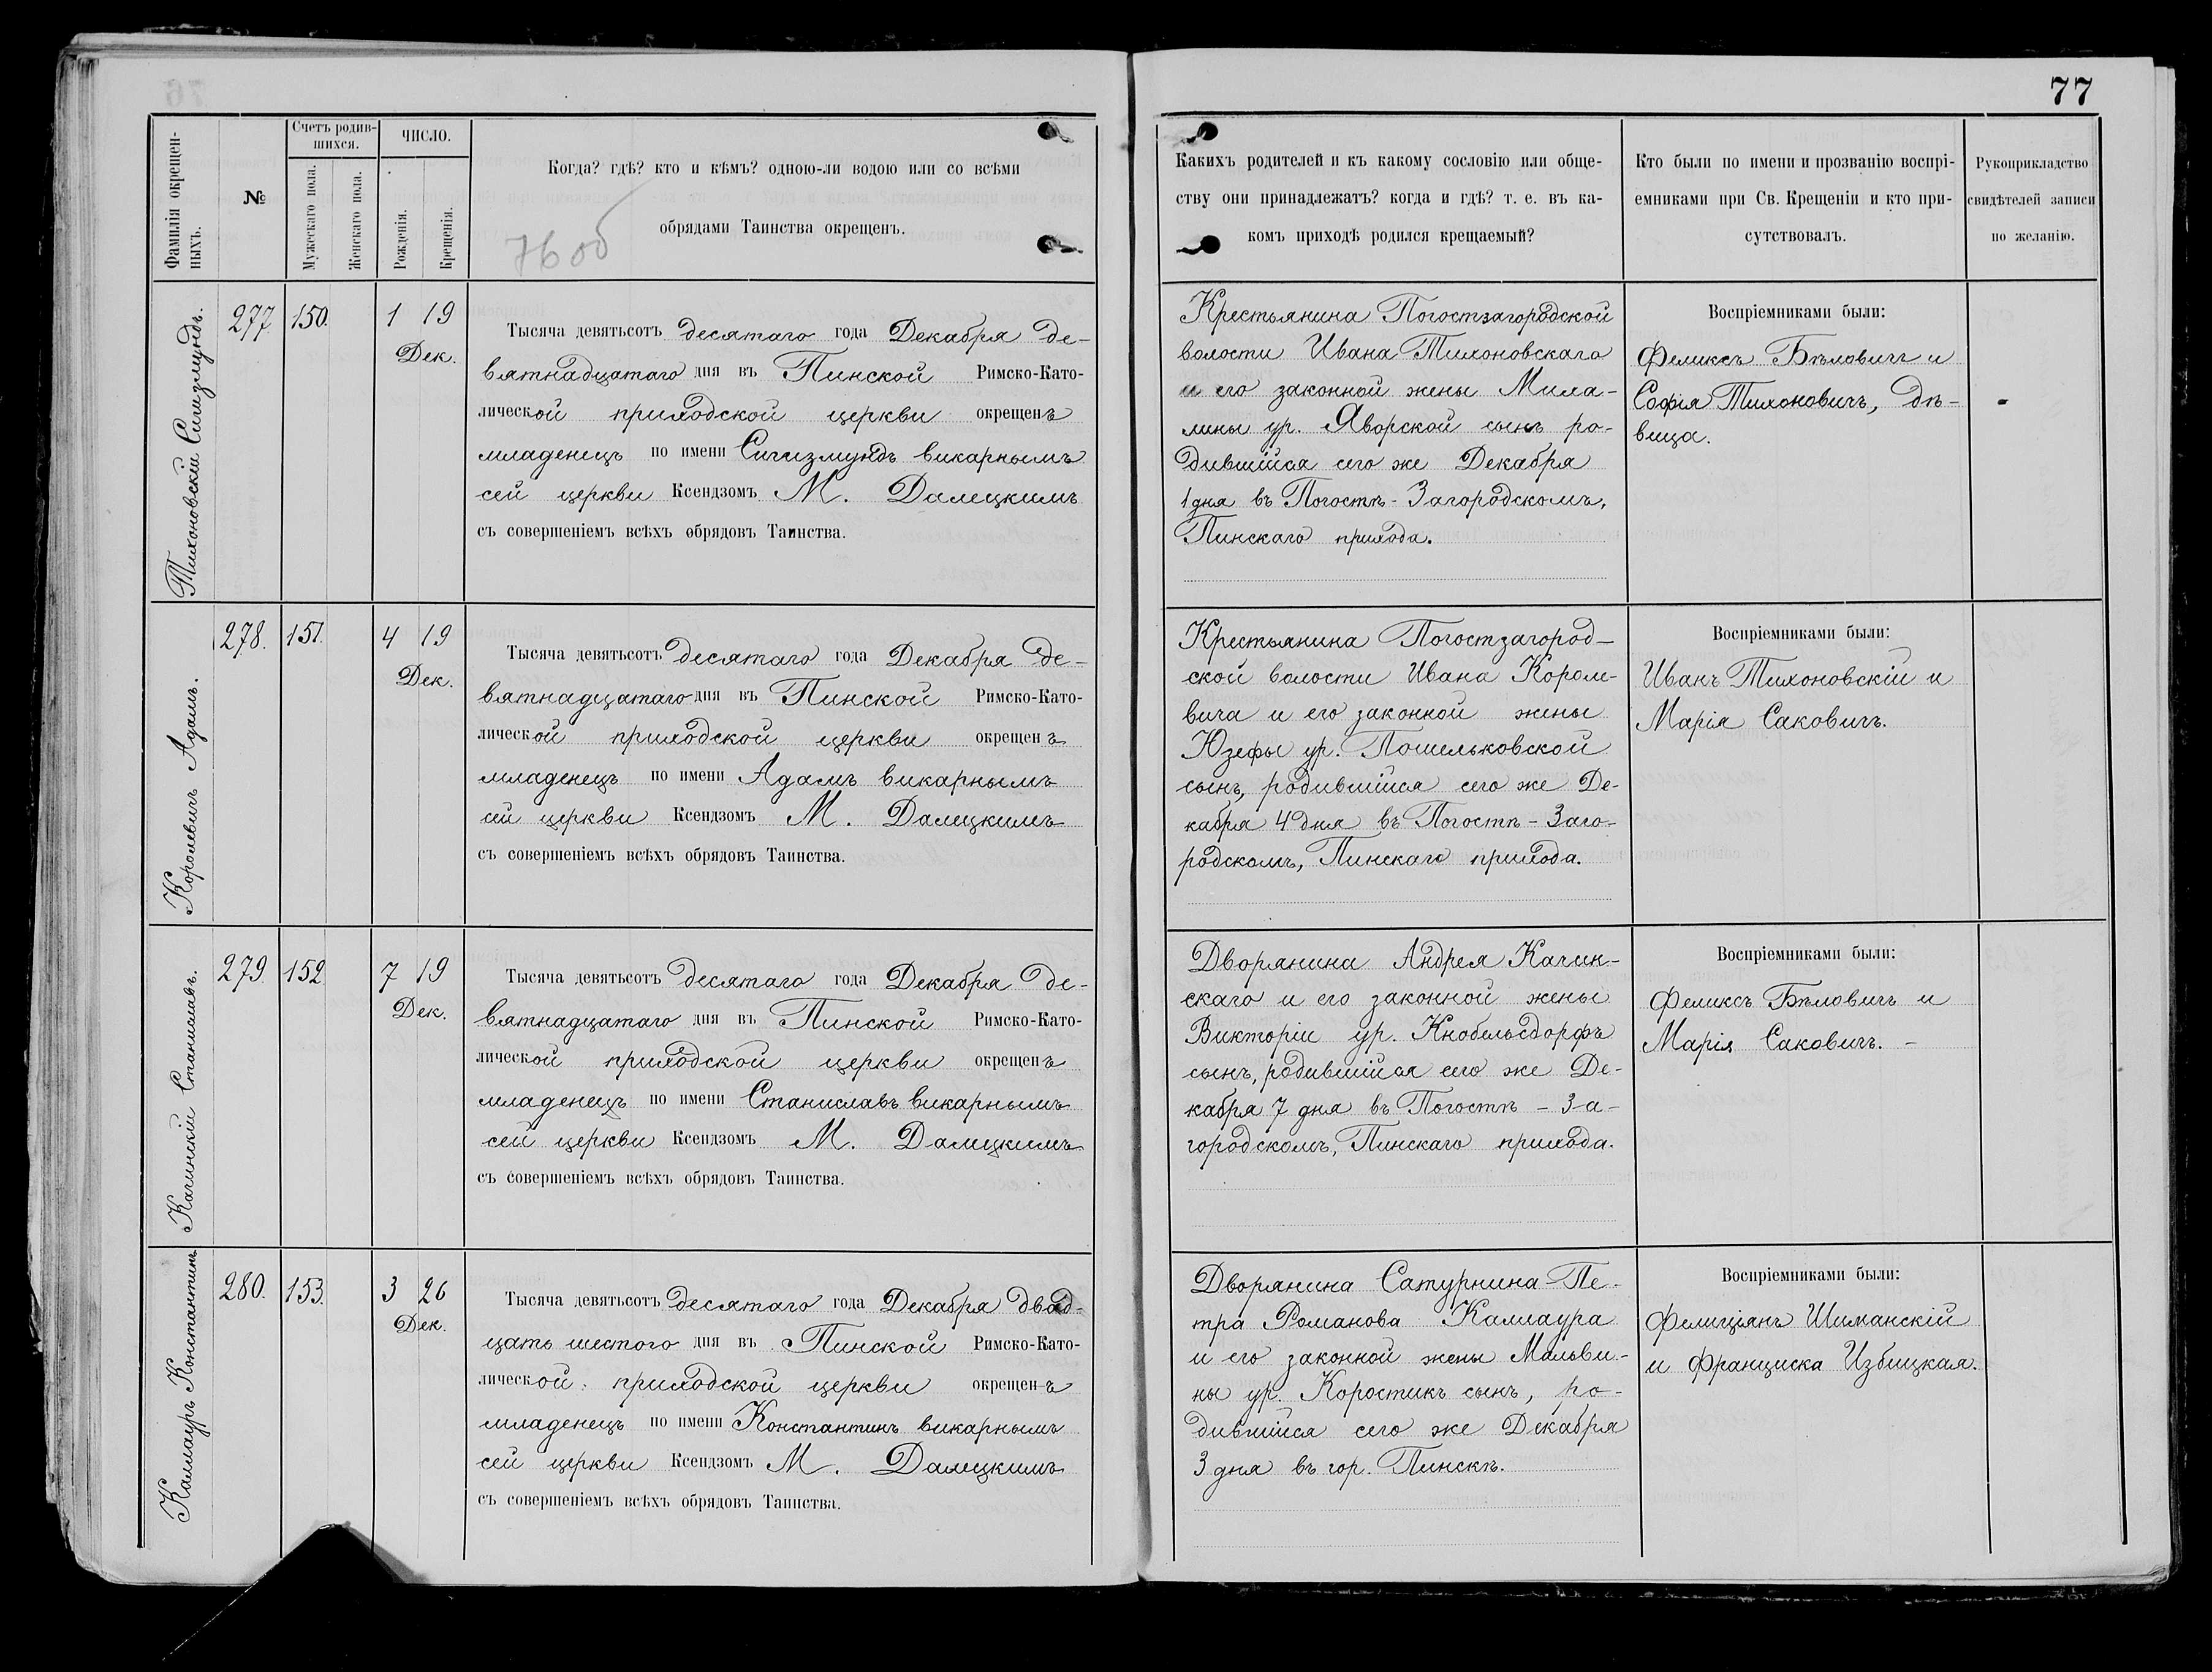 77
Фамилія окрещен-
ныхъ.
№
Счетъ родив-
шихся.
Мужескаго пола.
Женскаго пола.
ЧИСЛО.
Рожденія.
Крещенія.
Когда? гдѣ? кто и кѣмъ? одною-ли водою или со всѣми
обрядами Таинства окрещенъ.
76 об
Какихъ родителей и къ какому сословію или обще-
ству они принадлежатъ? когда и гдѣ? т. е. въ ка-
комъ приходѣ родился крещаемый?
Кто были по имени и прозванію воспрі-
емниками при Св. Крещеніи и кто при-
сутствовалъ.
Рукоприкладство
свидѣтелей записи
по желанію.
Тихоновскій Сигизмундъ.
277
150.
1 19
Дек.
Тысяча девятьсотъ десятаго года Декабря де-
вятнадцатаго дня въ Пинской Римско-Като-
лической приходской церкви окрещенъ
младенецъ по имени Сигизмундъ викарнымъ
сей церкви Ксендзомъ М. Далецкимъ
съ совершеніемъ всѣхъ обрядовъ Таинства.
Крестьянина Погостзагородской
волости Ивана Тихоновскаго
и его законной жены Мила-
лины ур. Яворской сынъ ро-
дившійся сего же Декабря
1 дня въ Погостѣ-Загородскомъ,
Пинскаго прихода.
Воспріемниками были:
Феликсъ Бѣловичъ и
Софія Тихоновичъ, дѣ-
вица.
Королевичъ Адамъ.
278.
151.
4 19
Дек.
Тысяча девятьсотъ десятаго года Декабря де-
вятнадцатаго дня въ Пинской Римско-Като-
лической приходской церкви окрещенъ
младенецъ по имени Адамъ викарнымъ
сей церкви Ксендзомъ М. Далецкимъ
съ совершеніемъ всѣхъ обрядовъ Таинства.
Крестьянина Погостзагород-
ской волости Ивана Короле-
вича и его законной жены
Юзефы ур. Пошельковской
сынъ, родившійся сего же Де-
кабря 4 дня въ Погостѣ-Заго-
родскомъ, Пинскаго прихода.
Воспріемниками были:
Иванъ Тихоновскій и
Марія Саковичъ.
Качинскій Станиславъ.
279.
152.
7 19
Дек.
Тысяча девятьсотъ десятаго года Декабря де-
вятнадцатаго дня въ Пинской Римско-Като-
лической приходской церкви окрещенъ
младенецъ по имени Станиславъ викарнымъ
сей церкви Ксендзомъ М. Далецкимъ
съ совершеніемъ всѣхъ обрядовъ Таинства.
Дворянина Андрея Качин-
скаго и его законной жены
Викторіи ур. Кнобельсдорфъ
сынъ, родившійся сего же Де-
кабря 7 дня въ Погостѣ - За-
городскомъ, Пинскаго прихода.
Воспріемниками были:
Феликсъ Бѣловичъ и
Марія Саковичъ. -
Каллауръ Константинъ
280.
153.
3 26
Дек.
Тысяча девятьсотъ десятаго года Декабря двад-
цать шестого дня въ Пинской Римско-Като-
лической приходской церкви окрещенъ
младенецъ по имени Константинъ викарнымъ
сей церкви Ксендзомъ М. Далецкимъ
съ совершеніемъ всѣхъ обрядовъ Таинства.
Дворянина Сатурнина-Пе-
тра Романова Каллаура
и его законной жены Мальви-
ны ур. Коростикъ сынъ, ро-
дившійся сего же Декабря
3 дня въ гор. Пинскѣ.
Воспріемниками были:
Фелиціянъ Шиманскій
и Франциска Избицкая.